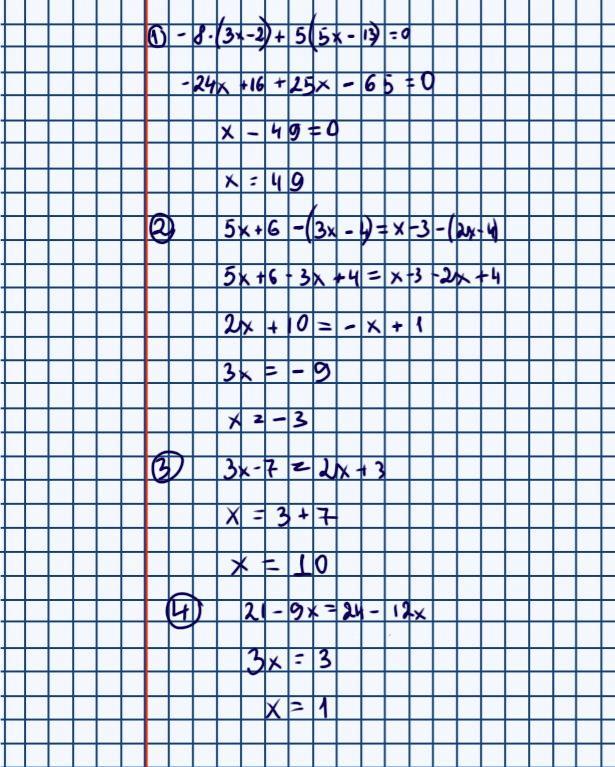 ① -8·(3x-2)+5(5x-13)=0
-24x+16+25x-65=0
x-49=0
x=49
② 5x+6-(3x-4)=x-3-(2x-4)
5x+6-3x+4=x-3-2x+4
2x+10=-x+1
3x=-9
x=-3
③ 3x-7=2x+3
x=3+7
x=10
④ 21-9x=24-12x
3x=3
x=1